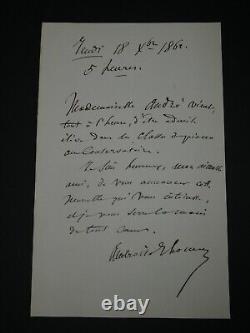 Jeudi 18 Xbre 186
5 heures.
Mademoiselle André vient,
tout à l'heure, d'être
élève dans la classe de piano
au Conservatoire.
Je suis heureux, mon
ami, de vous annoncer cette
nouvelle qui vous intéresse,
et je vous serre la main
de tout cœur.
Ambroise Thomas